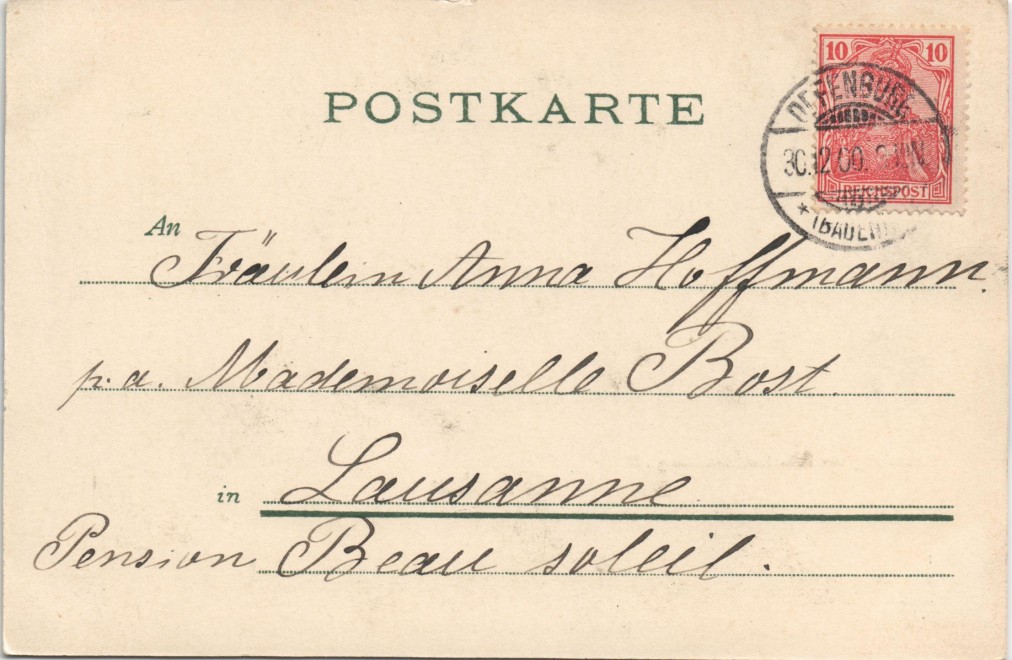 POSTKARTE
10 10
REICHSPOST
30.12.00.
(BADEN)
An Fräulein Anna Hoffmann.
p. a. Mademoiselle Bost.
in Lausanne
Pension Beau soleil.